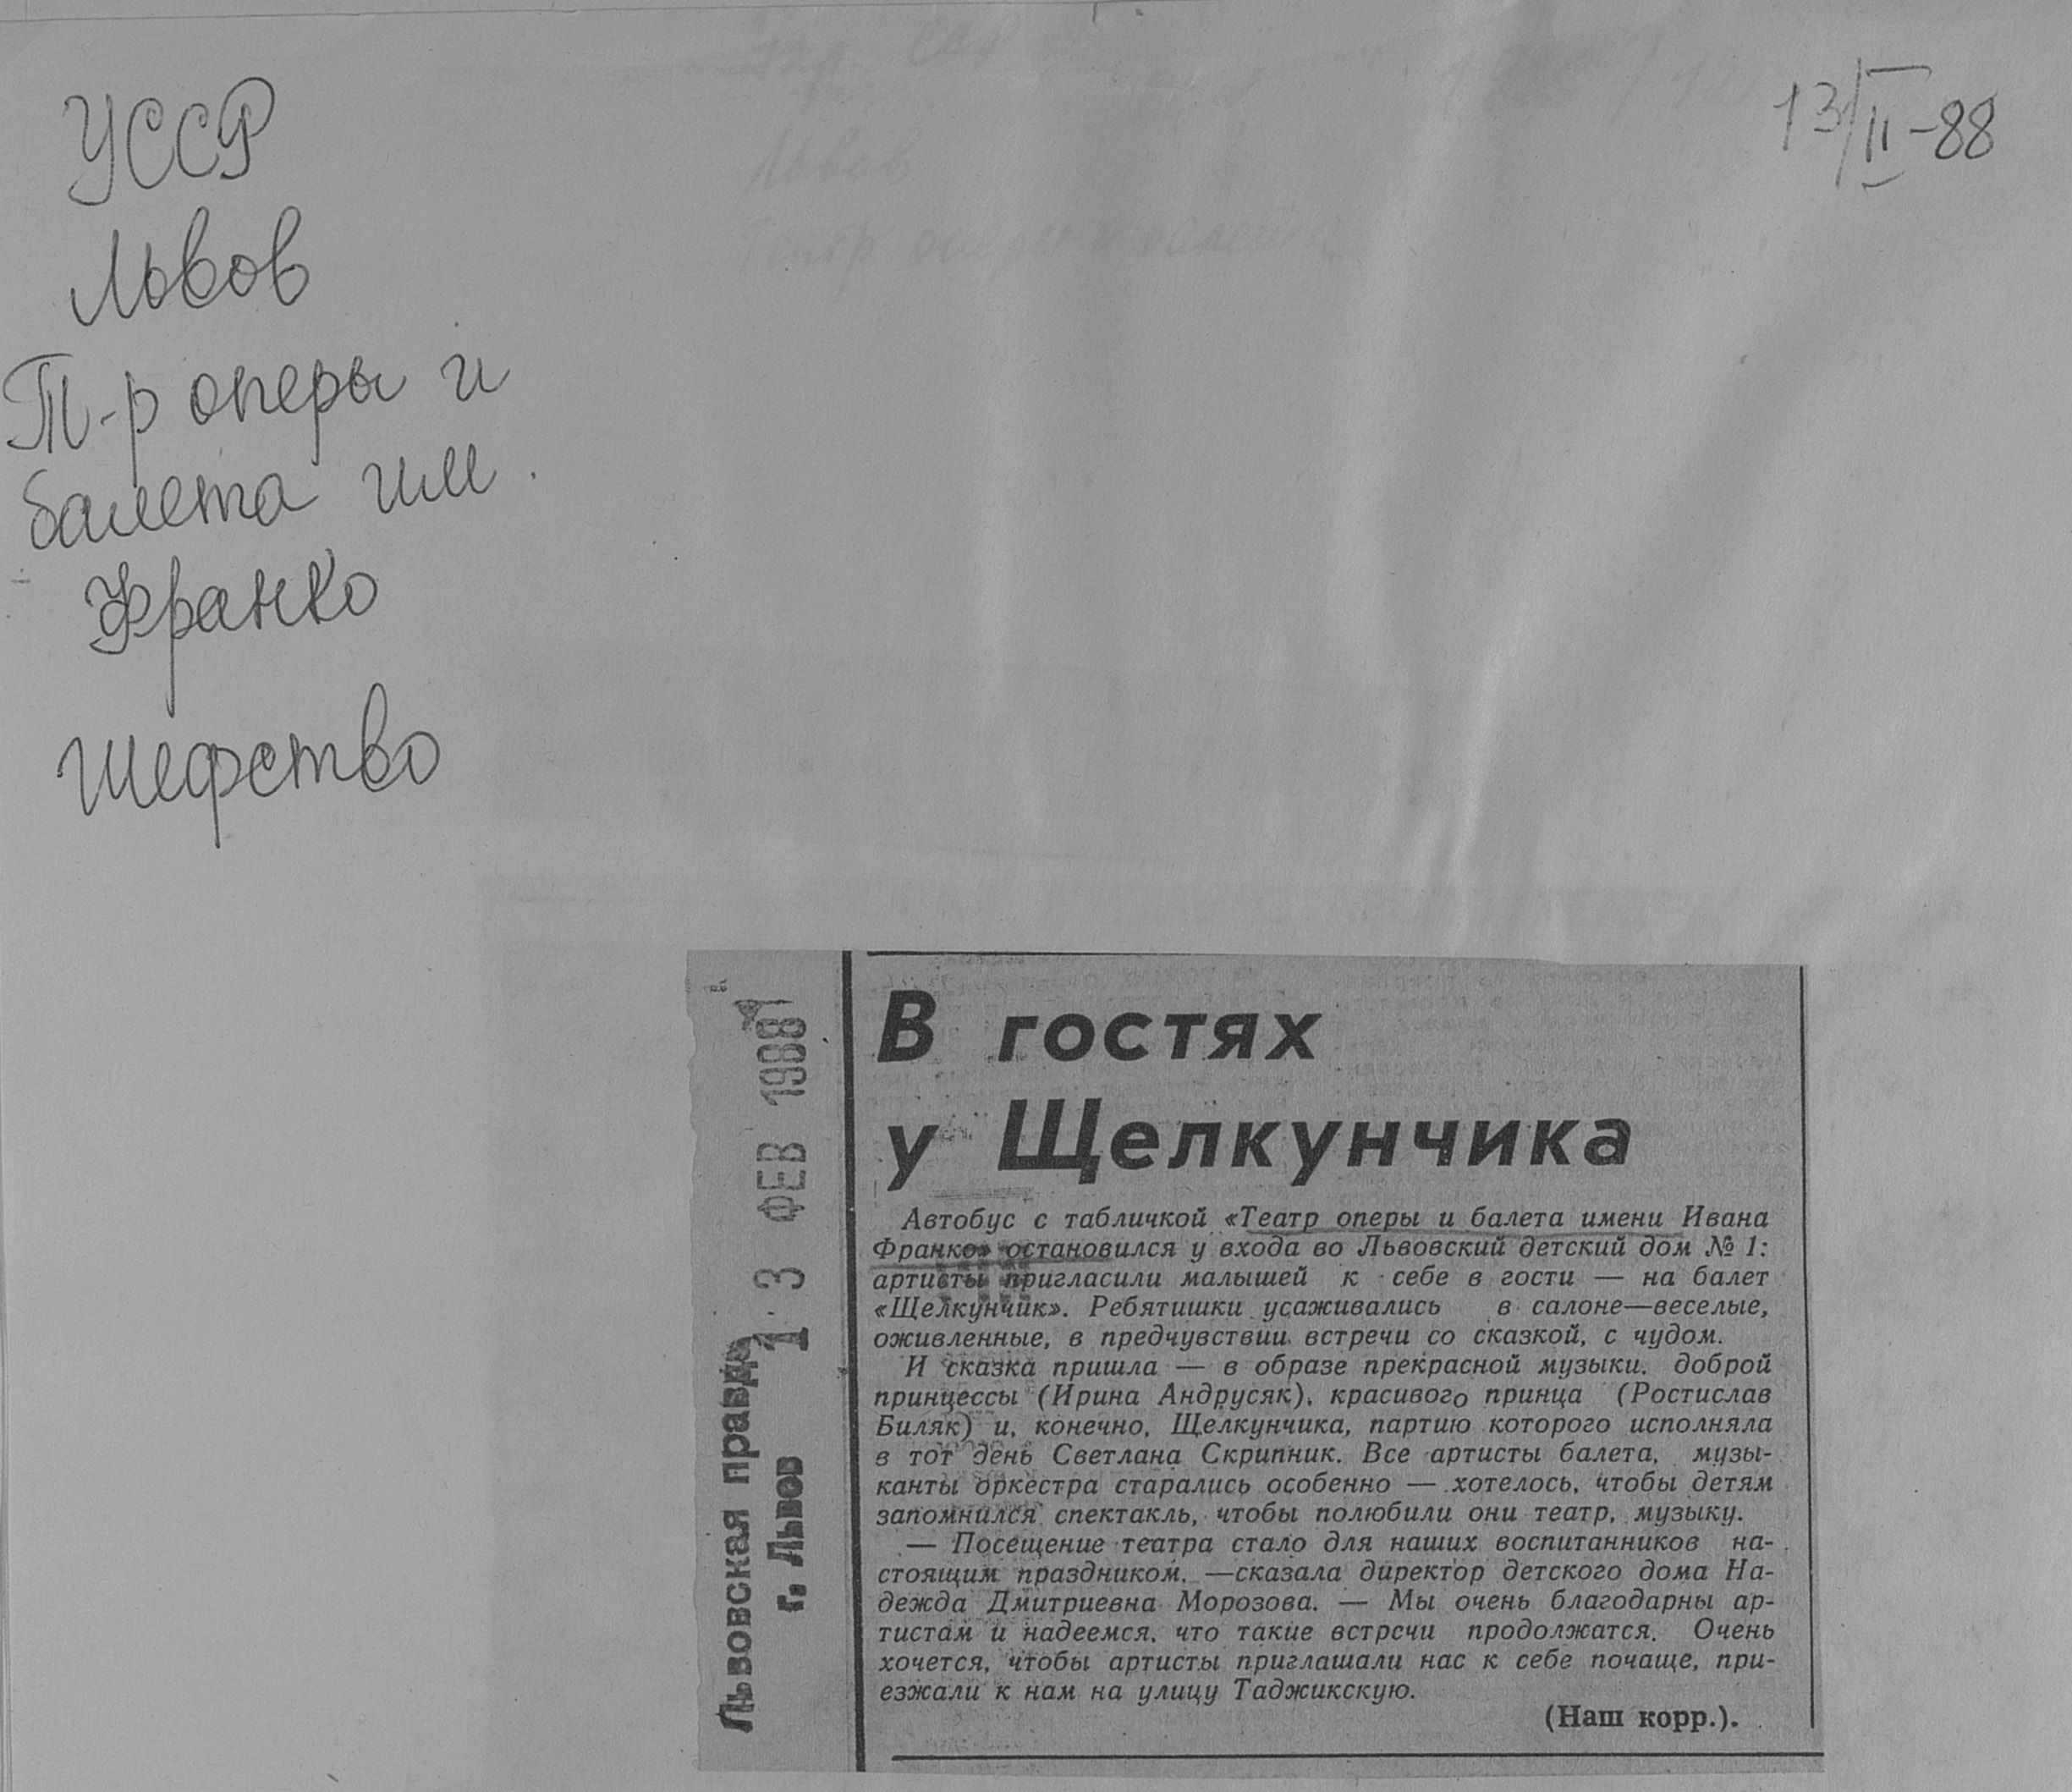 УССР
Львов
Т-р оперы и
балета им.
Франко
шефство
13/II-88
Львовская правда
г. Львов
13 ФЕВ 1988
В гостях
у Щелкунчика
Автобус с табличкой «Театр оперы и балета имени Ивана
Франко» остановился у входа во Львовский детский дом № 1:
артисты пригласили малышей к себе в гости — на балет
«Щелкунчик». Ребятишки усаживались в салоне—веселые,
оживленные, в предчувствии встречи со сказкой, с чудом.
И сказка пришла — в образе прекрасной музыки, доброй
принцессы (Ирина Андрусяк), красивого принца (Ростислав
Биляк) и, конечно, Щелкунчика, партию которого исполняла
в тот день Светлана Скрипник. Все артисты балета, музы-
канты оркестра старались особенно — хотелось, чтобы детям
запомнился спектакль, чтобы полюбили они театр, музыку.
— Посещение театра стало для наших воспитанников на-
стоящим праздником, —сказала директор детского дома На-
дежда Дмитриевна Морозова. — Мы очень благодарны ар-
тистам и надеемся, что такие встречи продолжатся. Очень
хочется, чтобы артисты приглашали нас к себе почаще, при-
езжали к нам на улицу Таджикскую.
(Наш корр.).